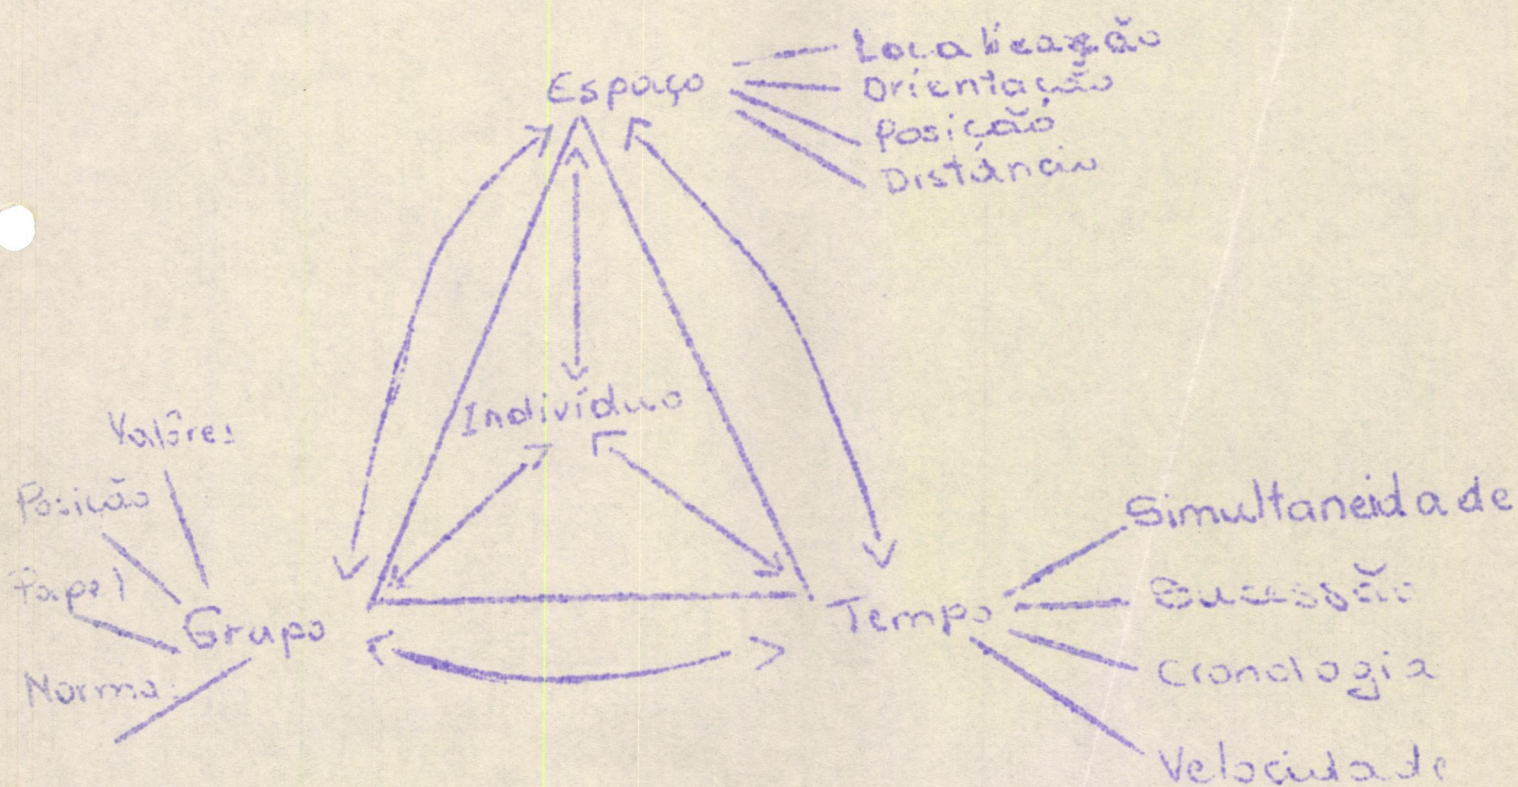 Localização
Espaço
Orientação
Posição
Distância
Indivíduo
Valôres
Posição
Papel
Grupo
Norma
Tempo
Simultaneidade
Sucessão
Cronologia
Velocidade